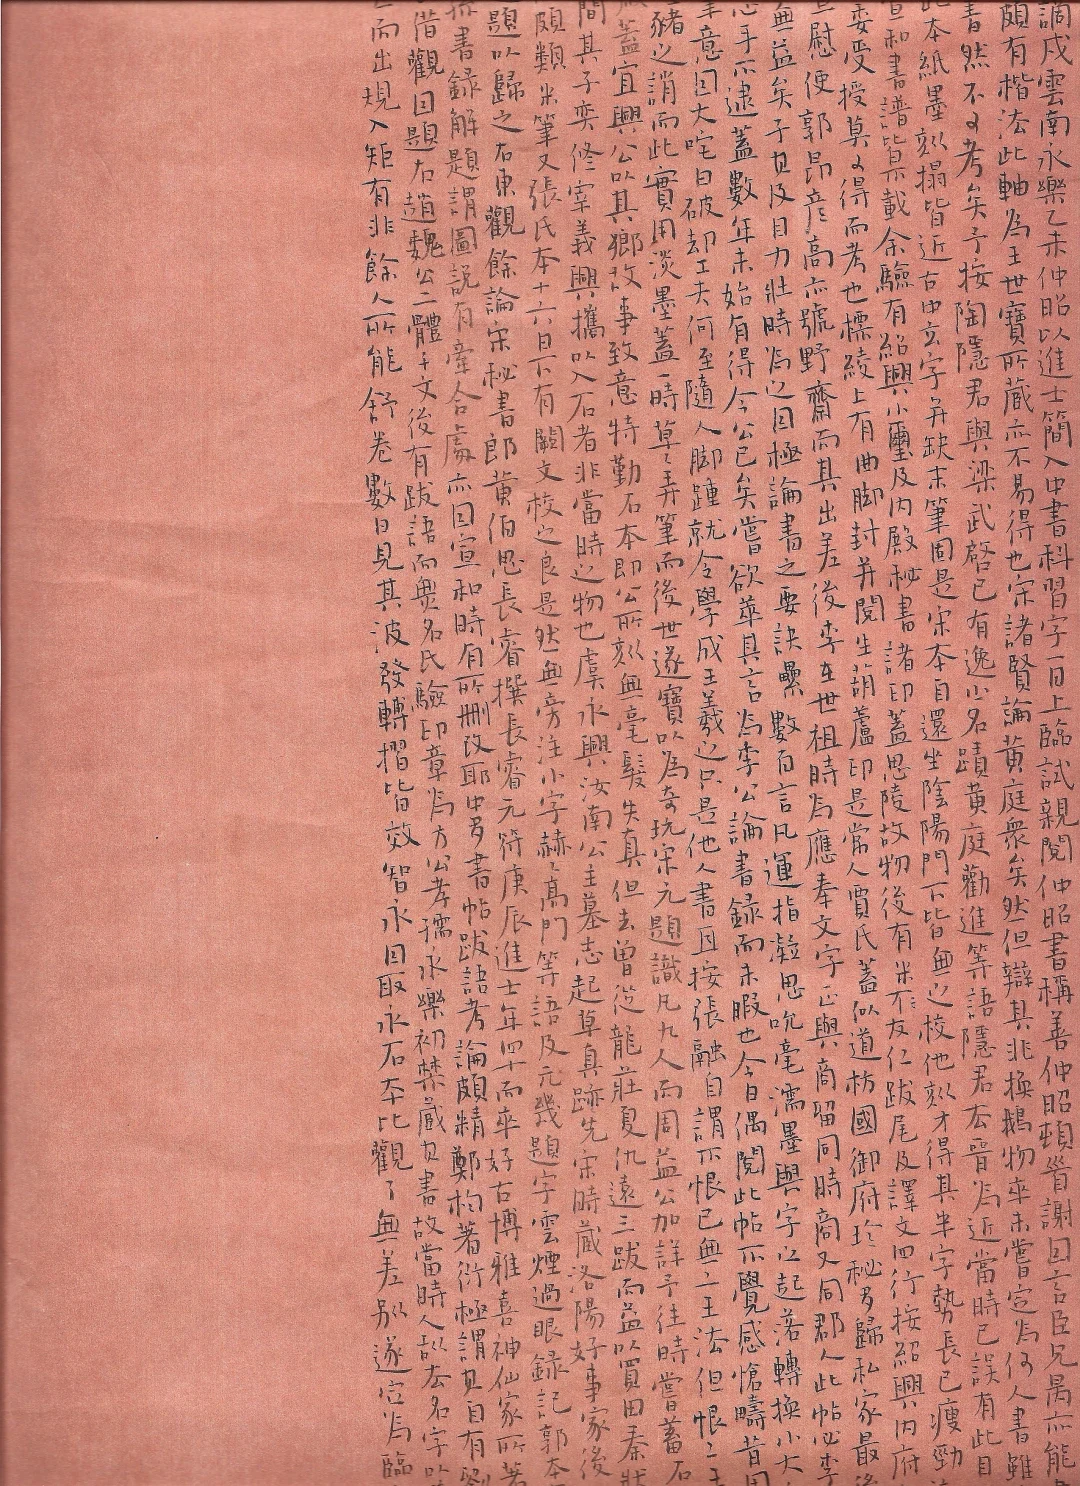 謫戍雲南永樂乙未仲昭以進士簡入中書科習字一日上臨試親閱仲昭書稱善仲昭頓首謝因言臣兄禺亦能
頗有楷法此軸為王世寶所藏亦不易得也宋諸賢論黃庭衆矣然但辯其非換鵝物來未嘗定為何人書雖
書然不可考矣予按陶隱君與梁武啓已有逸少名蹟黃庭勸進等語隱君去晉為近當時已誤有此目
此本紙墨刻搨皆近古中玄字并缺末筆固是宋本自還坐陰陽門下皆無之校他刻才得其半字勢長已瘦勁
宣和書譜皆不載余驗有紹興小璽及內殿秘書諸印蓋思陵故物後有米友仁跋尾及譯文四行按紹興內府
委受授莫可得而考也縹綾上有曲脚封并閱生葫蘆印是常人賈氏蓋似道枋國御府珍秘多歸私家最後
慰使郭昂彥高亦號野齋而其出差後李在世祖時為應奉文字正與商留同時商又同郡人此帖必李
無益矣子且及目力壯時為之因極論書之要訣纍數百言凡運指凝思吮毫濡墨與字之起落轉換小大
心手不逮蓋數年未始有得今公已矣嘗欲萃其言為李公論書録而未暇也今日偶閱此帖不覺感愴疇昔因
筆意因大咤曰破却工夫何至隨人脚踵就令學成王羲之只是他人書耳按張融自謂不恨已無二王法但恨二王
豬之誚而此實用淡墨蓋一時草草弄筆而後世遂寶以為奇玩宋元題識凡九人而周益公加詳予往時嘗蓄石
蓋宜興公以其鄉故事致意特勤石本即公所刻無毫髮失真但去曾從龍莊夏仇遠三跋而益以買田奏狀
間其子奕修宰義興攜以入石者非當時之物也虞永興汝南公主墓志起草真跡先宋時藏洛陽好事家後
頗類米筆又張氏本十六日下有闕文校之良是然無旁注小字赫赫高門等語及元幾題字雲煙過眼録記郭本
題以歸之右東觀餘論宋秘書郎黃伯思長睿撰長睿元符庚辰進士年四十而卒好古博雅喜神仙家所著
書録解題謂圖説有牽合處亦因宣和時有所刪改耶中多書帖跋語考論頗精鄭杓著衍極謂其自有
借觀因題右趙魏公二體千文後有跋語而無名氏驗印章為方公孝孺永樂初禁藏其書故當時人以去名字
而出規入矩有非餘人所能舒卷數日見其波發轉摺皆效智永因取永石本比觀了無差別遂定為臨